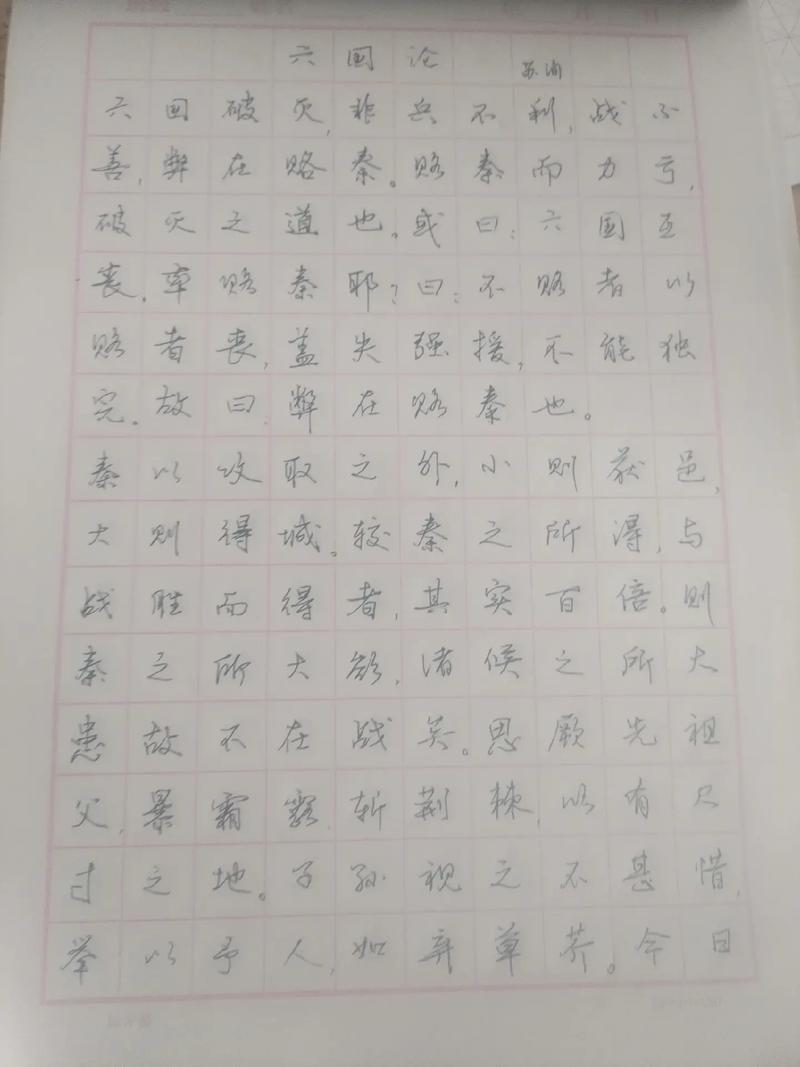 六国论 苏洵
六国破灭，非兵不利，战不
善，弊在赂秦。赂秦而力亏，
破灭之道也。或曰：六国互
丧，率赂秦耶？曰：不赂者以
赂者丧，盖失强援，不能独
完。故曰：弊在赂秦也。
秦以攻取之外，小则获邑，
大则得城。较秦之所得，与
战胜而得者，其实百倍。则
秦之所大欲，诸侯之所大
患，故不在战矣。思厥先祖
父，暴霜露，斩荆棘，以有尺
寸之地。子孙视之不甚惜，
举以予人，如弃草芥。今日